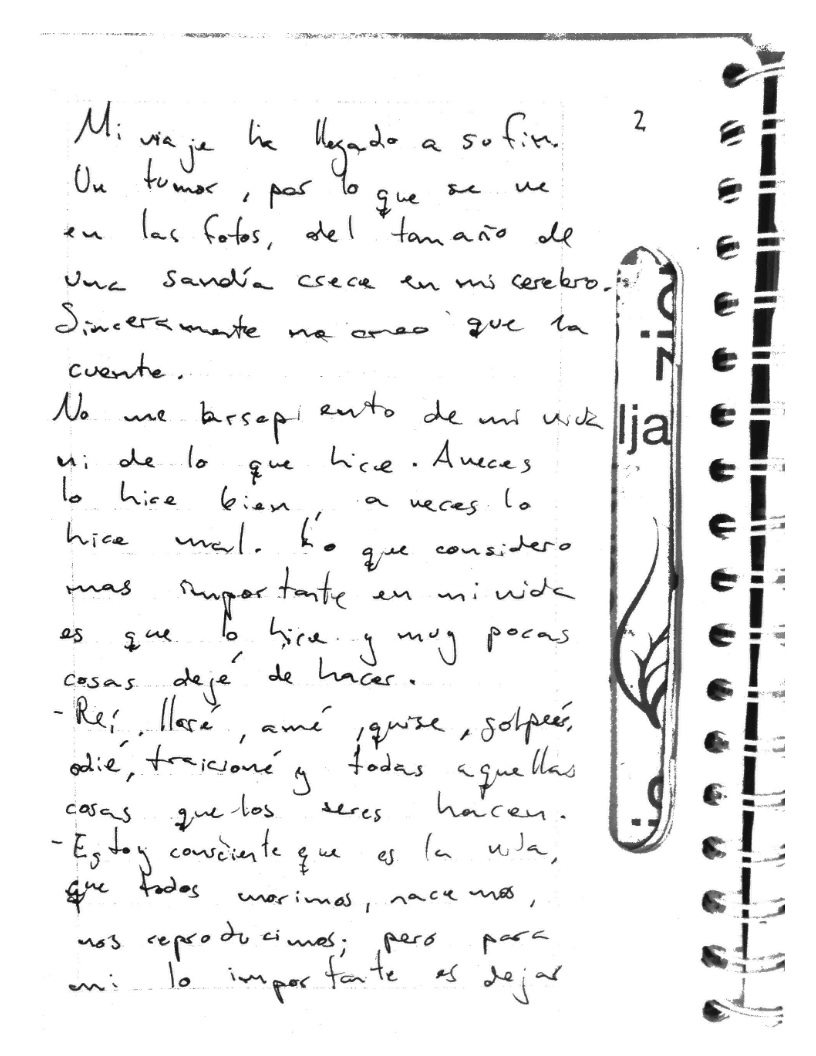 2
Mi viaje ha llegado a su fin.
Un tumor, por lo que se ve
en las fotos, del tamaño de
una sandía crece en mi cerebro.
Sinceramente no creo que la
cuente.
No me arrepiento de mi vida
ni de lo que hice. Aveces
lo hice bien, a veces lo
hice mal. Lo que considero
mas importante en mi vida
es que lo hice y muy pocas
cosas dejé de hacer.
- Reí, lloré, amé, quise, golpeés,
odié, traicioné y todas aquellas
cosas que los seres hacen.
- Estoy consciente que es la vida,
que todos morimos, nacemos,
nos reproducimos; pero para
mi lo importante es dejar
zio
lja